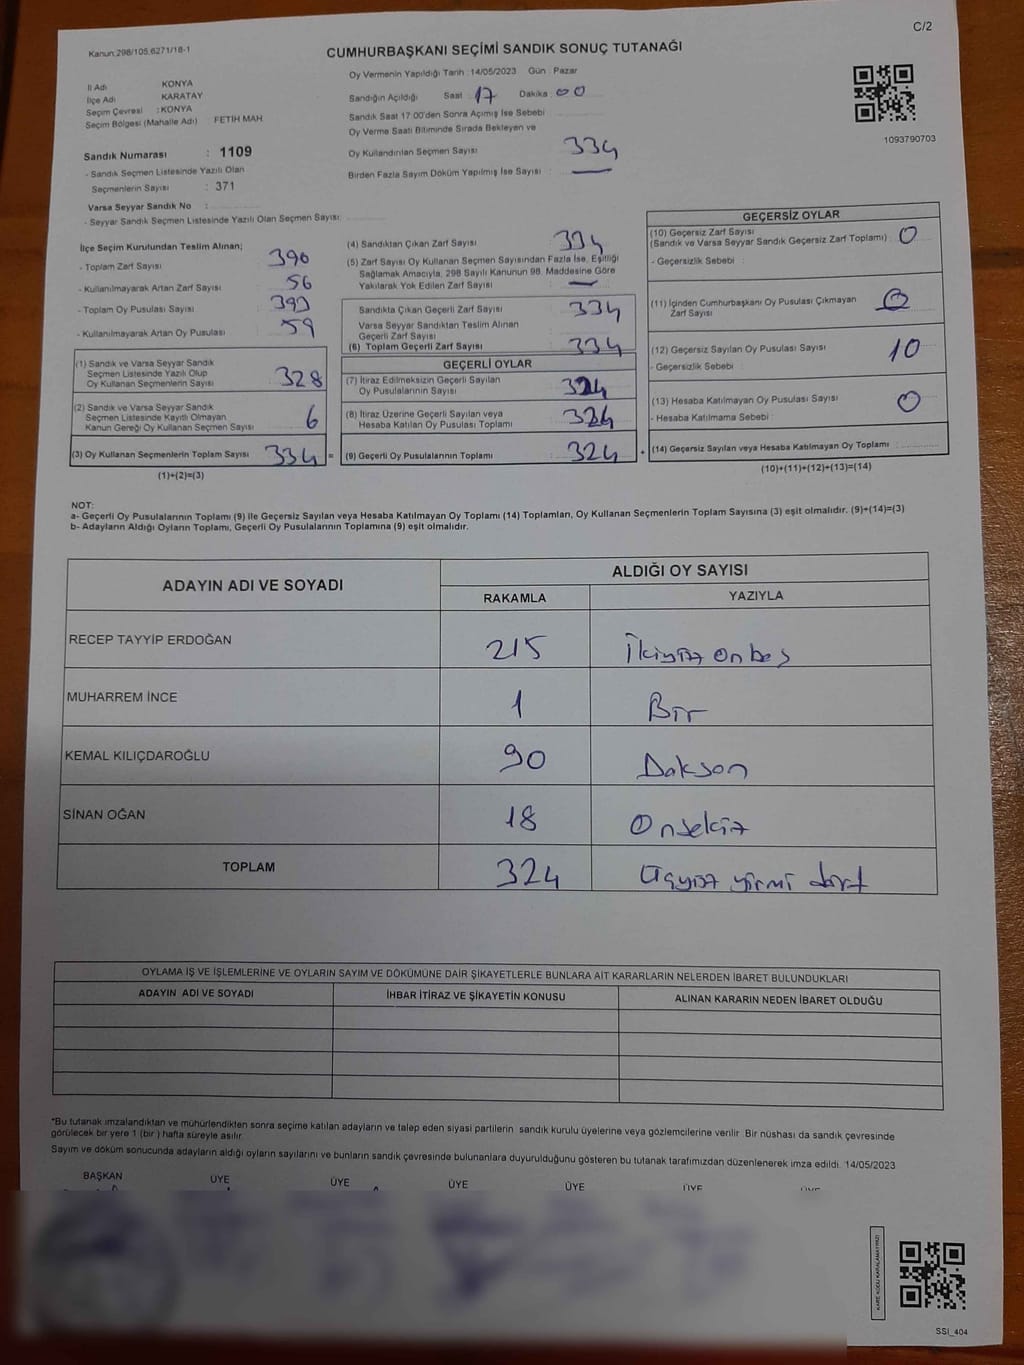 C/2
Kanun:298/105,6271/18-1
CUMHURBAŞKANI SEÇİMİ SANDIK SONUÇ TUTANAĞI
Oy Vermenin Yapıldığı Tarih :14/05/2023 Gün : Pazar
İl Adı KONYA
İlçe Adı KARATAY
Seçim Çevresi :KONYA
Seçim Bölgesi (Mahalle Adı) FETİH MAH.
Sandığın Açıldığı Saat 17 Dakika 00
Sandık Saat 17.00'den Sonra Açımış İse Sebebi
Oy Verme Saati Bitiminde Sırada Bekleyen ve
Oy Kullandırılan Seçmen Sayısı : 334
Birden Fazla Sayım Döküm Yapılmış İse Sayısı : —
1093790703
Sandık Numarası : 1109
- Sandık Seçmen Listesinde Yazılı Olan
Seçmenlerin Sayısı : 371
Varsa Seyyar Sandık No :
- Seyyar Sandık Seçmen Listesinde Yazılı Olan Seçmen Sayısı:
İlçe Seçim Kurulundan Teslim Alınan;
- Toplam Zarf Sayısı 390
- Kullanılmayarak Artan Zarf Sayısı : 56
- Toplam Oy Pusulası Sayısı : 393
- Kullanılmayarak Artan Oy Pusulası : 59
(1) Sandık ve Varsa Seyyar Sandık
Seçmen Listesinde Yazılı Olup
Oy Kullanan Seçmenlerin Sayısı : 328
(2) Sandık ve Varsa Seyyar Sandık
Seçmen Listesinde Kayıtlı Olmayan
Kanun Gereği Oy Kullanan Seçmen Sayısı : 6
(3) Oy Kullanan Seçmenlerin Toplam Sayısı : 334 =
(1)+(2)=(3)
(4) Sandıktan Çıkan Zarf Sayısı : 334
(5) Zarf Sayısı Oy Kullanan Seçmen Sayısından Fazla İse, Eşitliği
Sağlamak Amacıyla, 298 Sayılı Kanunun 98. Maddesine Göre
Yakılarak Yok Edilen Zarf Sayısı : —
Sandıkta Çıkan Geçerli Zarf Sayısı : 334
Varsa Seyyar Sandıktan Teslim Alınan
Geçerli Zarf Sayısı
(6) Toplam Geçerli Zarf Sayısı : 334
GEÇERLİ OYLAR
(7) İtiraz Edilmeksizin Geçerli Sayılan
Oy Pusulalarının Sayısı : 324
(8) İtiraz Üzerine Geçerli Sayılan veya
Hesaba Katılan Oy Pusulası Toplamı : 324
(9) Geçerli Oy Pusulalarının Toplamı : 324 +
GEÇERSİZ OYLAR
(10) Geçersiz Zarf Sayısı
(Sandık ve Varsa Seyyar Sandık Geçersiz Zarf Toplamı) : 0
- Geçersizlik Sebebi :
(11) İçinden Cumhurbaşkanı Oy Pusulası Çıkmayan
Zarf Sayısı : 0
(12) Geçersiz Sayılan Oy Pusulası Sayısı : 10
- Geçersizlik Sebebi :
(13) Hesaba Katılmayan Oy Pusulası Sayısı : 0
- Hesaba Katılmama Sebebi :
(14) Geçersiz Sayılan veya Hesaba Katılmayan Oy Toplamı :
(10)+(11)+(12)+(13)=(14)
NOT:
a- Geçerli Oy Pusulalarının Toplamı (9) ile Geçersiz Sayılan veya Hesaba Katılmayan Oy Toplamı (14) Toplamları, Oy Kullanan Seçmenlerin Toplam Sayısına (3) eşit olmalıdır. (9)+(14)=(3)
b- Adayların Aldığı Oyların Toplamı, Geçerli Oy Pusulalarının Toplamına (9) eşit olmalıdır.
ADAYIN ADI VE SOYADI ALDIĞI OY SAYISI
RAKAMLA YAZIYLA
RECEP TAYYİP ERDOĞAN 215 İkiyüz onbeş
MUHARREM İNCE 1 Bir
KEMAL KILIÇDAROĞLU 90 Doksan
SİNAN OĞAN 18 Onsekiz
TOPLAM 324 Üçyüz yirmi dört
OYLAMA İŞ VE İŞLEMLERİNE VE OYLARIN SAYIM VE DÖKÜMÜNE DAİR ŞİKAYETLERLE BUNLARA AİT KARARLARIN NELERDEN İBARET BULUNDUKLARI
ADAYIN ADI VE SOYADI İHBAR İTİRAZ VE ŞİKAYETİN KONUSU ALINAN KARARIN NEDEN İBARET OLDUĞU
*Bu tutanak imzalandıktan ve mühürlendikten sonra seçime katılan adayların ve talep eden siyasi partilerin sandık kurulu üyelerine veya gözlemcilerine verilir. Bir nüshası da sandık çevresinde
görülecek bir yere 1 (bir) hafta süreyle asılır.
Sayım ve döküm sonucunda adayların aldığı oyların sayılarını ve bunların sandık çevresinde bulunanlara duyurulduğunu gösteren bu tutanak tarafımızdan düzenlenerek imza edildi. 14/05/2023
BAŞKAN ÜYE ÜYE ÜYE ÜYE ÜYE ÜYE
KARE KODU KARALAMAYINIZ!
SSI_404